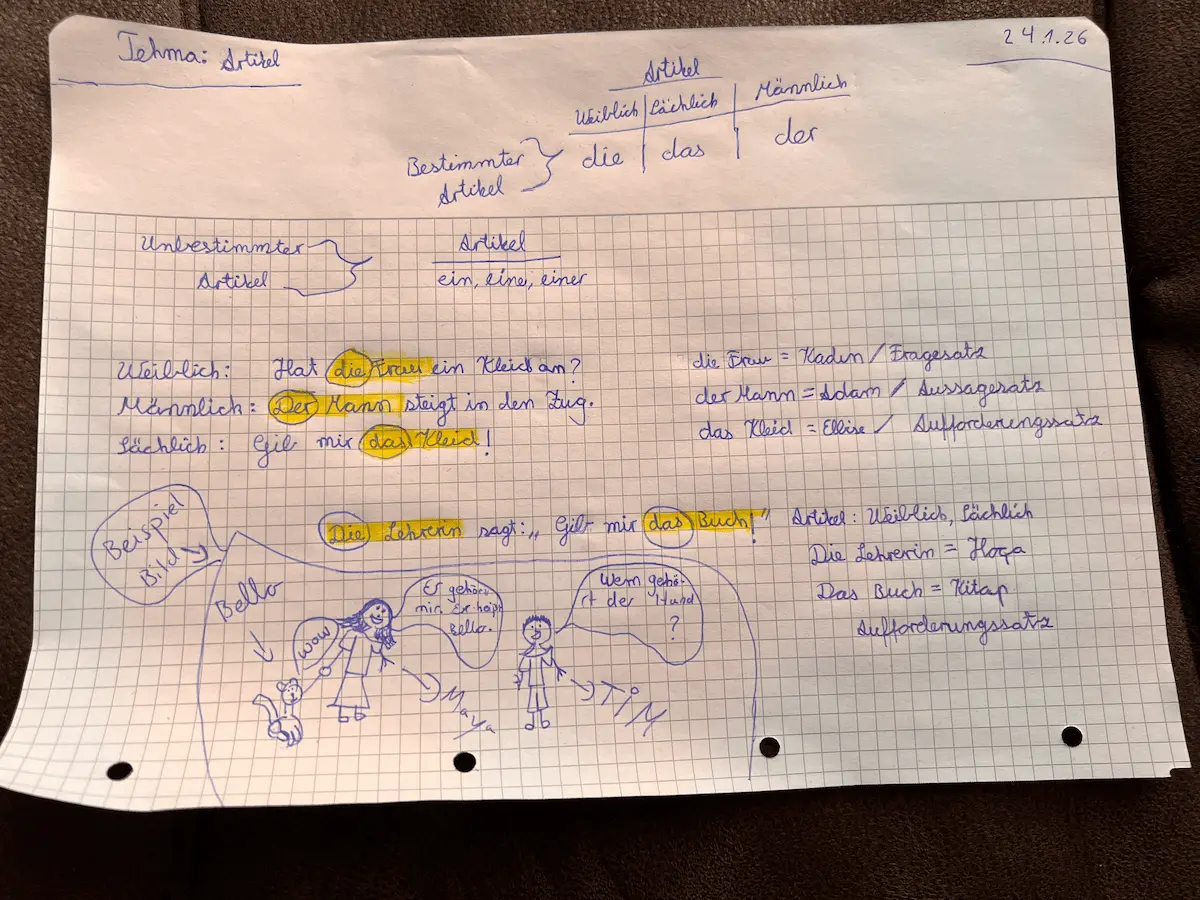 Tehma: Artikel
24.1.26
Artikel
Weiblich Sächlich Männlich
Bestimmter Artikel
die das der
Unbestimmter
Artikel
Artikel
ein, eine, einer
Weiblich: Hat die Frau ein Kleid an?
die Frau = Kadın / Fragesatz
Männlich: Der Mann steigt in den Zug.
der Mann = Adam / Aussagesatz
Sächlich: Gib mir das Kleid!
das Kleid = Ellise / Aufforderungssatz
Beispiel
Bild
Die Lehrerin sagt: „Gib mir das Buch!"
Artikel: Weiblich, Sächlich
Die Lehrerin = Hoca
Das Buch = Kitap
Aufforderungssatz
Bello
Wow
Er gehört
mir. Er heißt
Bello.
Wem gehö-
rt der Hund
?
Maya
TiM